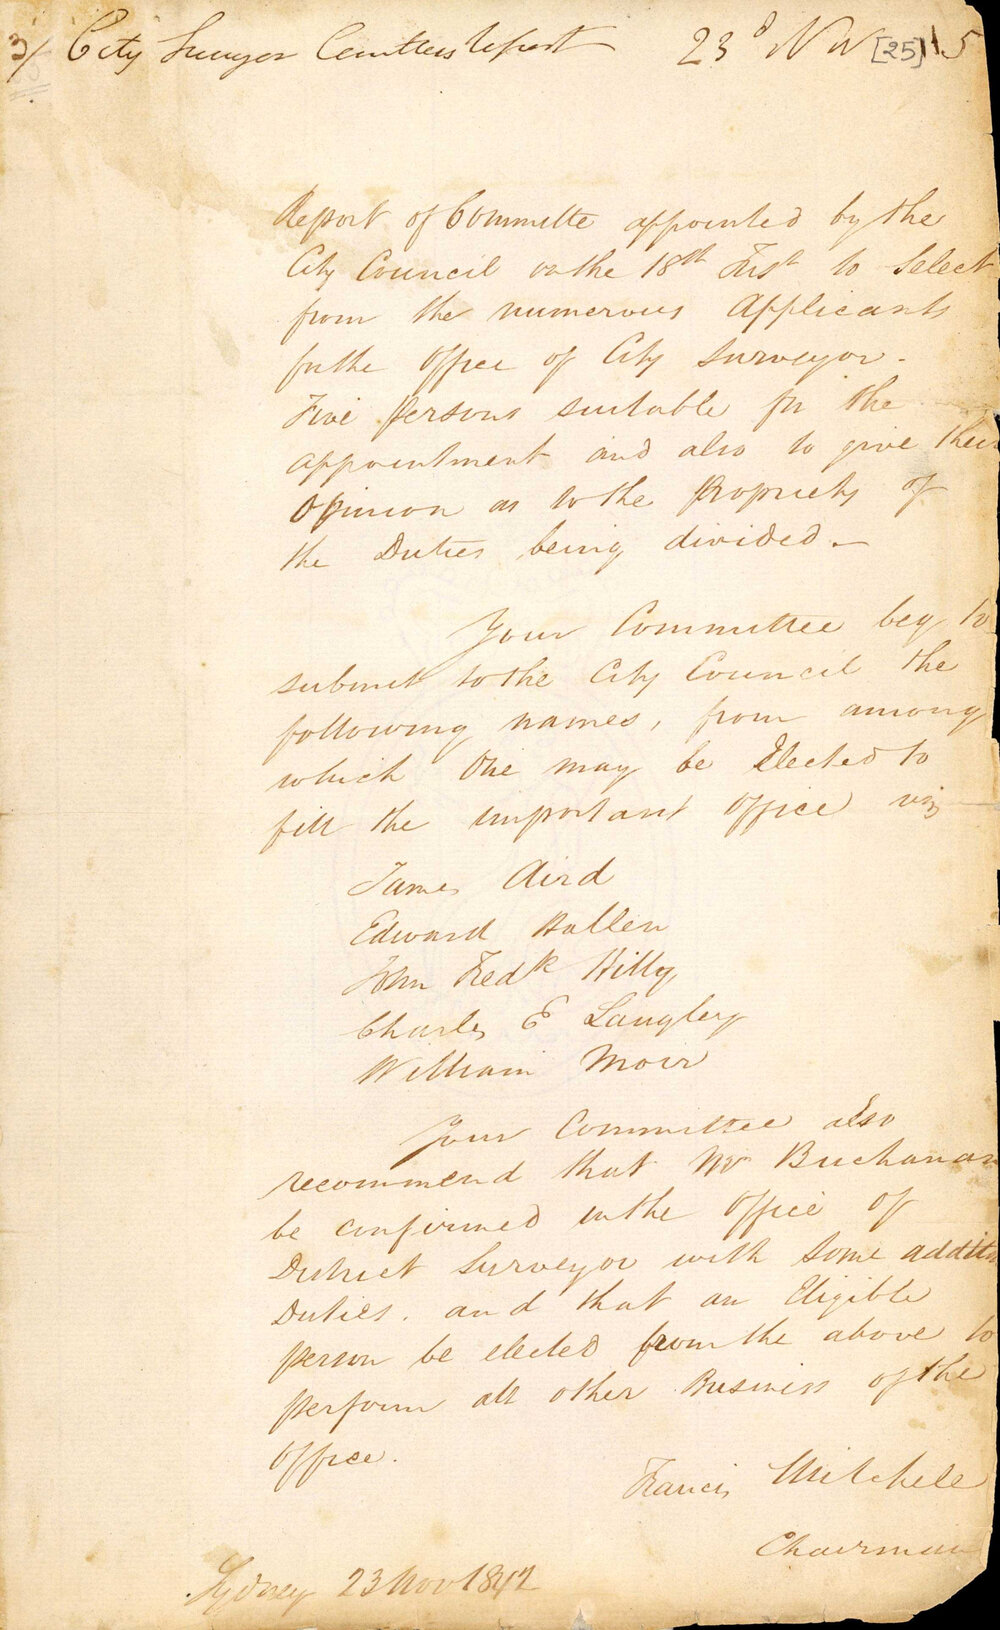 3/ City Surveyor Comttees Report 23d Nov [25] 15
Report of Committe appointed by the
City Council on the 18th Inst to Select
from the numerous Applicants
for the Office of City Surveyor -
Five Persons suitable for the
appointment and also to give their
Opinion as to the Propriety of
the Duties being divided -
Your Committee beg to
submit to the City Council the
following names, from among
which One may be Elected to
fill the important Office viz
James Aird
Edward Hallen
John Fredk Hilly
Charles E Langley
William Moir
Your Committee also
recommend that Mr Buchanan
be confirmed in the Office of
District Surveyor with some addit
Duties. and that an Eligible
person be elected from the above to
perform all other Business of the
Office.
Francis Mitchell
Chairman
Sydney 23 Nov 1842